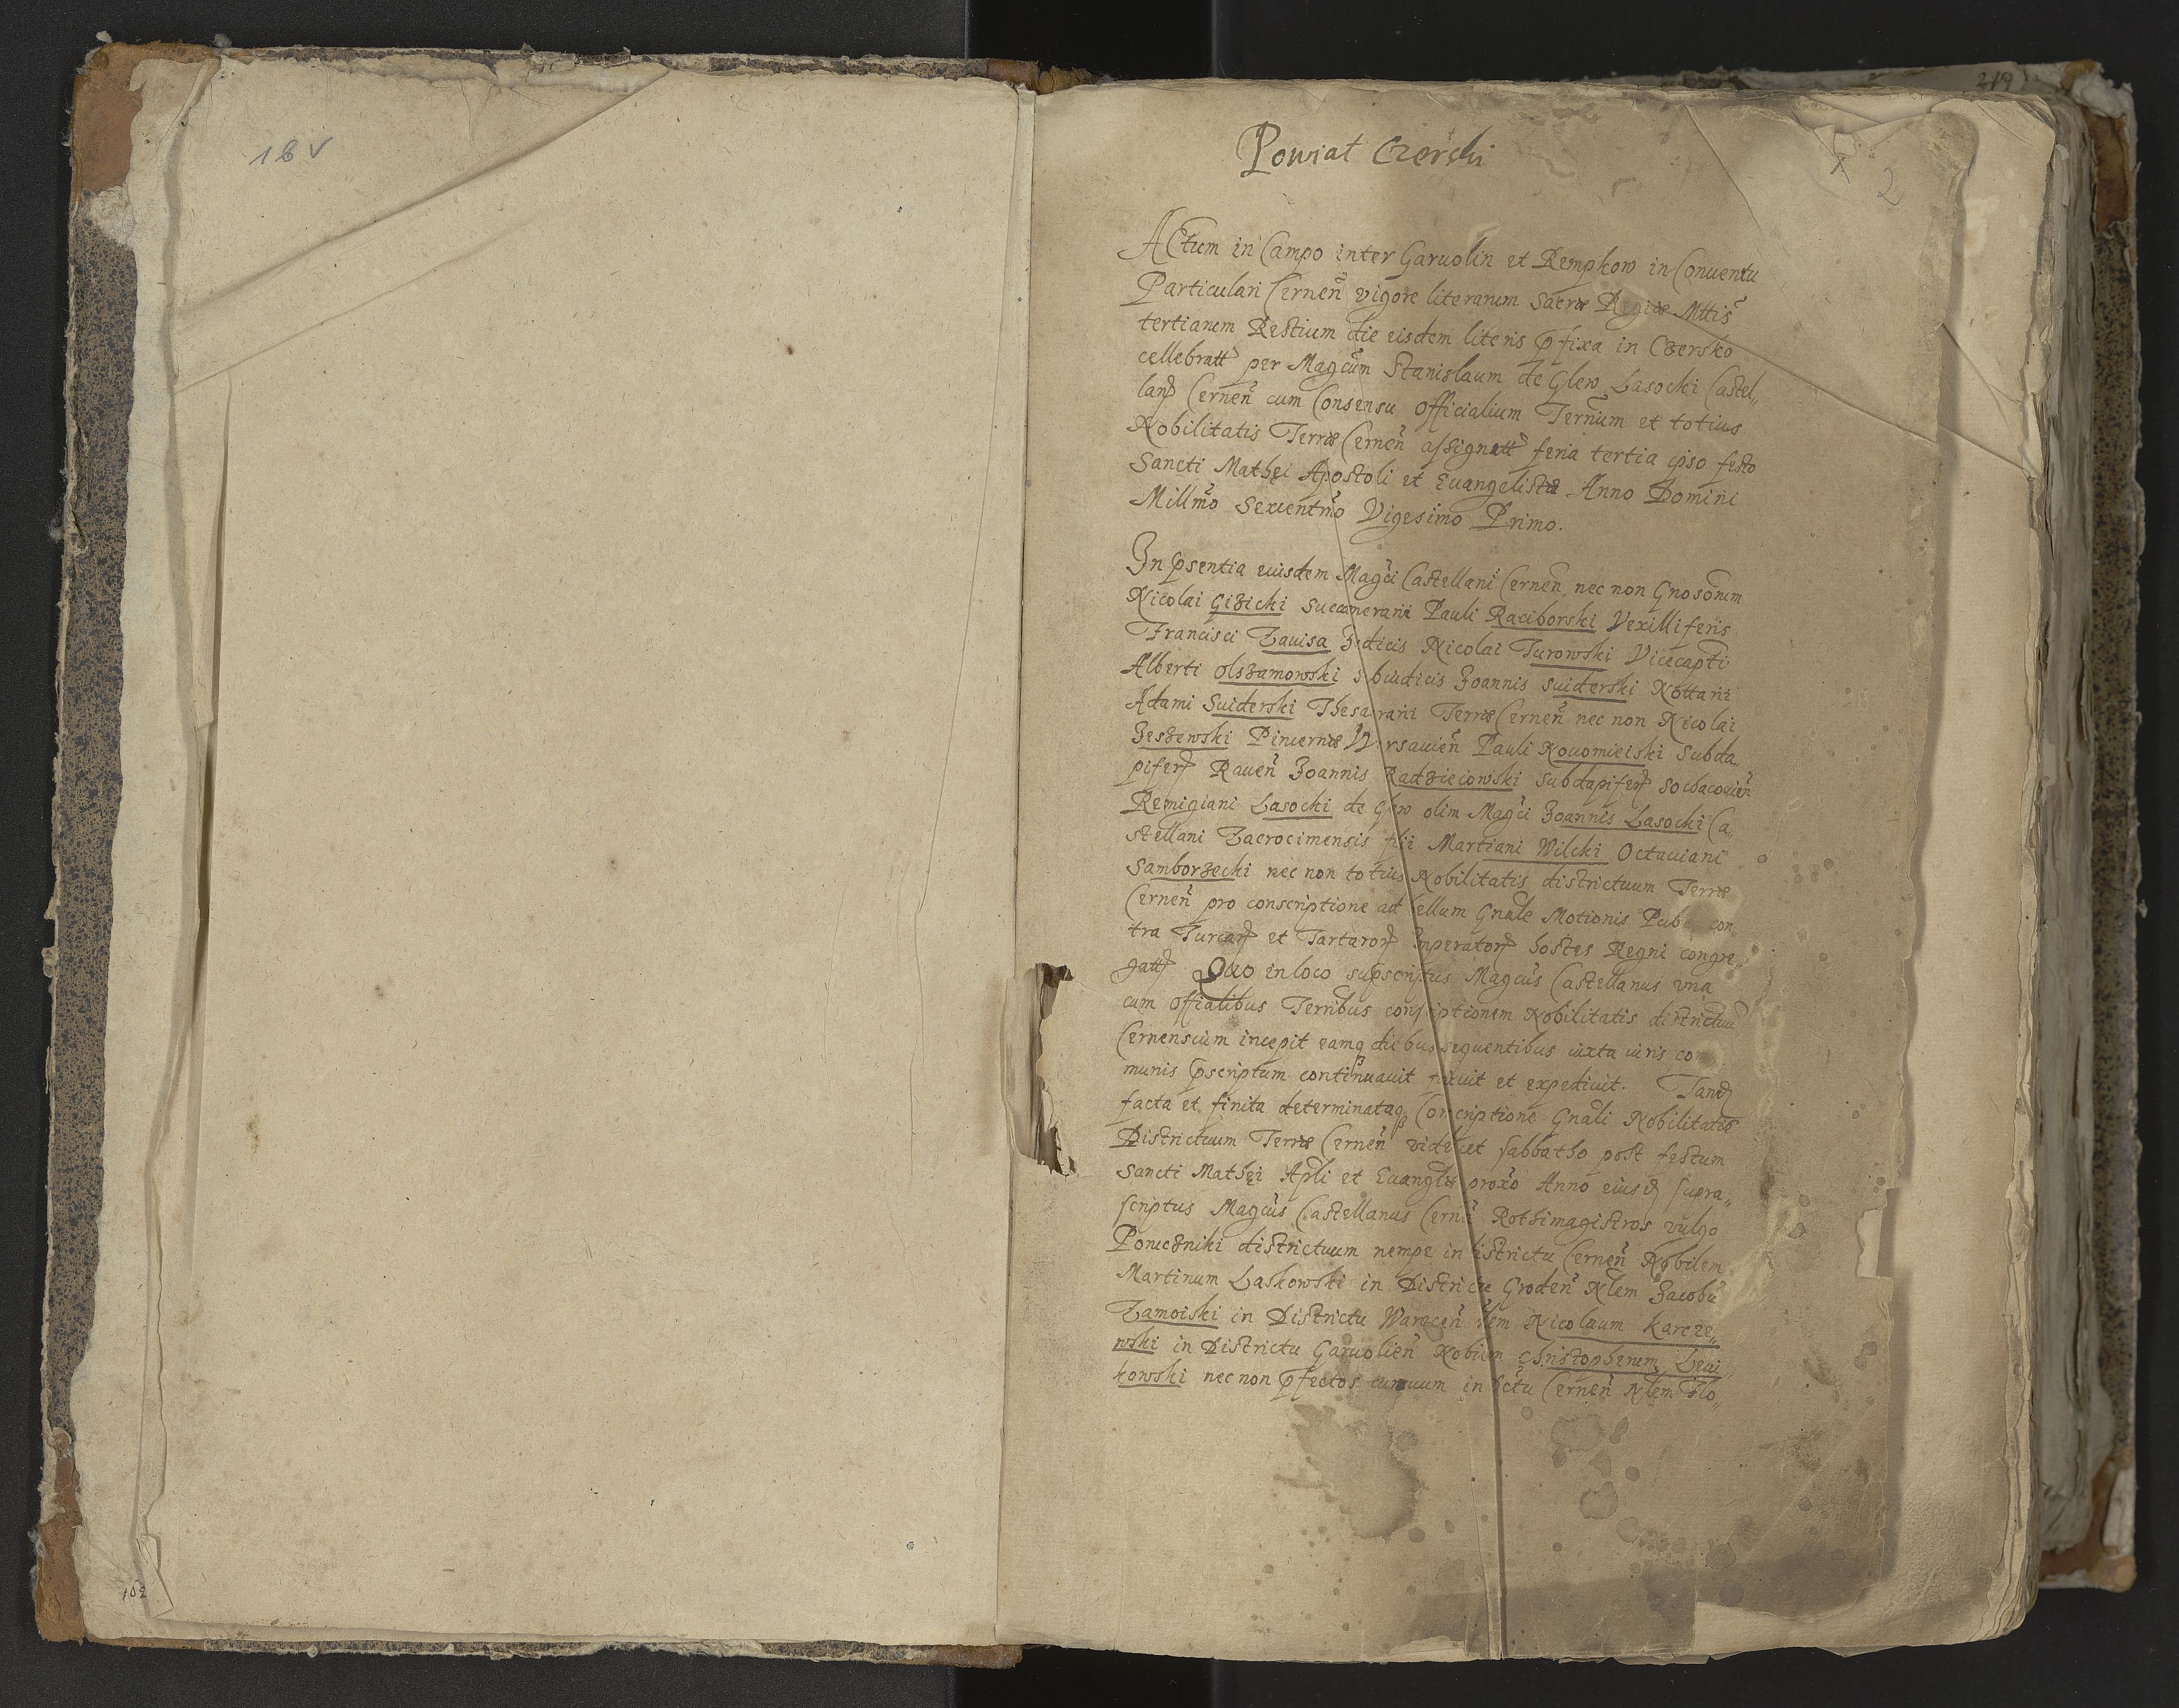 1 b v
102
219
Powiat Czerski
1
2
Actum in Campo inter Garuolin et Rempkow in Conuentu
Particulari Cernen̄ vigore literarum Sacræ Regiæ Mttis
tertiarum Restium die eisdem literis pfixa in Czersko
cellebratt per Magcūm Stanislaum de Glew Lasocki Castel„
lan Cernen̄ cum Consensu Officialium Ternūm et totius
Nobilitatis Terræ Cernen̄ assignatt feria tertia ipso festo
Sancti Mathęi Apostoli et Euangelistæ Anno Domini
Millmō Sexcentmō Vigesimo Primo.
In psentia eiusdem Magcī Castellani Cernen̄ nec non Gnosorūm
Nicolai Gizicki Succamerarii Pauli Raciborski Vexilliferis
Francisci Zauisa Iudicis Nicolai Turowski Vicecaptī
Alberti Olszamowski Subiudicis Joannis Suiderski Nottarii
Adami Suiderski Thesaurarii Terræ Cernen̄ nec non Nicolai
Jeszewski Pincernæ Warsauien̄ Pauli Nouomieiski Subda„
pifer Rauen̄ Joannis Radzieiowski Subdapifer Sochacouien̄
Remigiani Lasocki de Glew olim Magcī Joannis Lasocki Ca„
stellani Zacrocimensis filii Martiani Wilcki Octauiani
Samborzecki nec non totius Nobilitatis districtuum Terræ
Cernen̄ pro conscriptione ad bellum Gnāle Motionis Pub con„
tra Turcar et Tartaror Imperator hostes Regni congre„
gatt Quo in loco supscriptus Magcūs Castellanus vna
cum Offialibus Terribus conscriptionem Nobilitatis districtuū
Cernensium incepit eamq diebus sequentibus iuxta iuris com
munis pscriptum continuauit finiuit et expediuit. Tand
facta et finita determinataq Conscriptione Gnāli Nobilitatis
Districtuum Terræ Cernen̄ videlicet sabbatho post festum
Sancti Mathęi Apli et Euanglis proxō Anno eiusd supra„
scriptus Magcūs Castellanus Cernn̄ Rothimagistros vulgo
Poruczniki districtuum nempe in districtu Cernen̄ Nobilem
Martinum Laskowski in Districtu Groden̄ Nlem Jacobū
Zamoiski in Districtu Warecen̄ Nlem Nicolaum Karcze„
wski in Districtu Garuolien̄ Nobilem Christopherum
kowski nec non pfectos curruum in dctu Cernen̄ Nlem Flo„